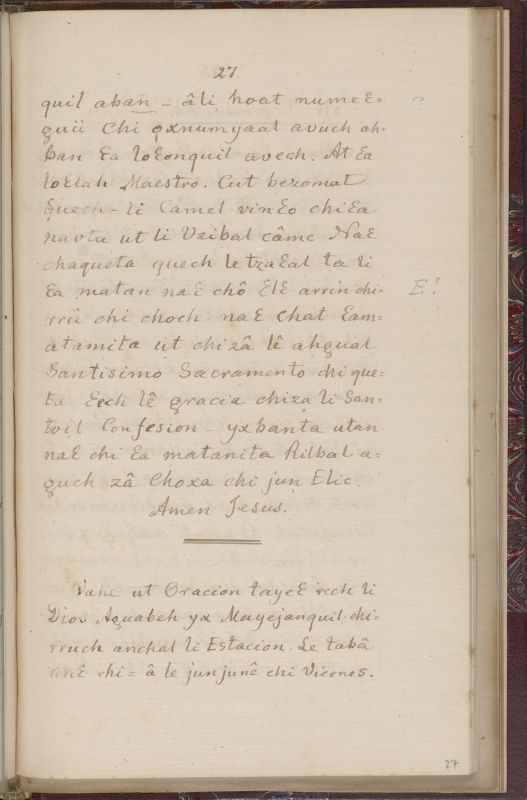 27.
quil aban̄ - âli hoat numeƐ= ?
guii Chi oxnumyaal avuch ah-
ban Ɛa loƐonquil avech. At Ɛa
loƐlah Maestro. Cut bezomat
quech - li Camel vinƐo chiƐa
navta ut li Uzibal câmc NaƐ
chaqueta quech le tzaƐal ta li
Ɛa matan naƐ chô ƐlƐ arrin chi- E?
rrû chi choch naƐ chat Ɛam=
atamita ut chizâ lê ahgual
Santisimo Sacramento chi que=
ta Ɛech lê gracia chiza li San-
toil Confesion - yxbanta utan
naƐ chi Ɛa matanita Rilbal a-
guch zâ Choxa chi jun Elic.
Amen Jesus.
Vahe ut Oracion tayeƐ rech li
Dios Aguabeh yx Mayejanquil chi=
rruch anchal li Estacion. Le tabâ
anƐ chi= â le junjunê chi Viernes.
27